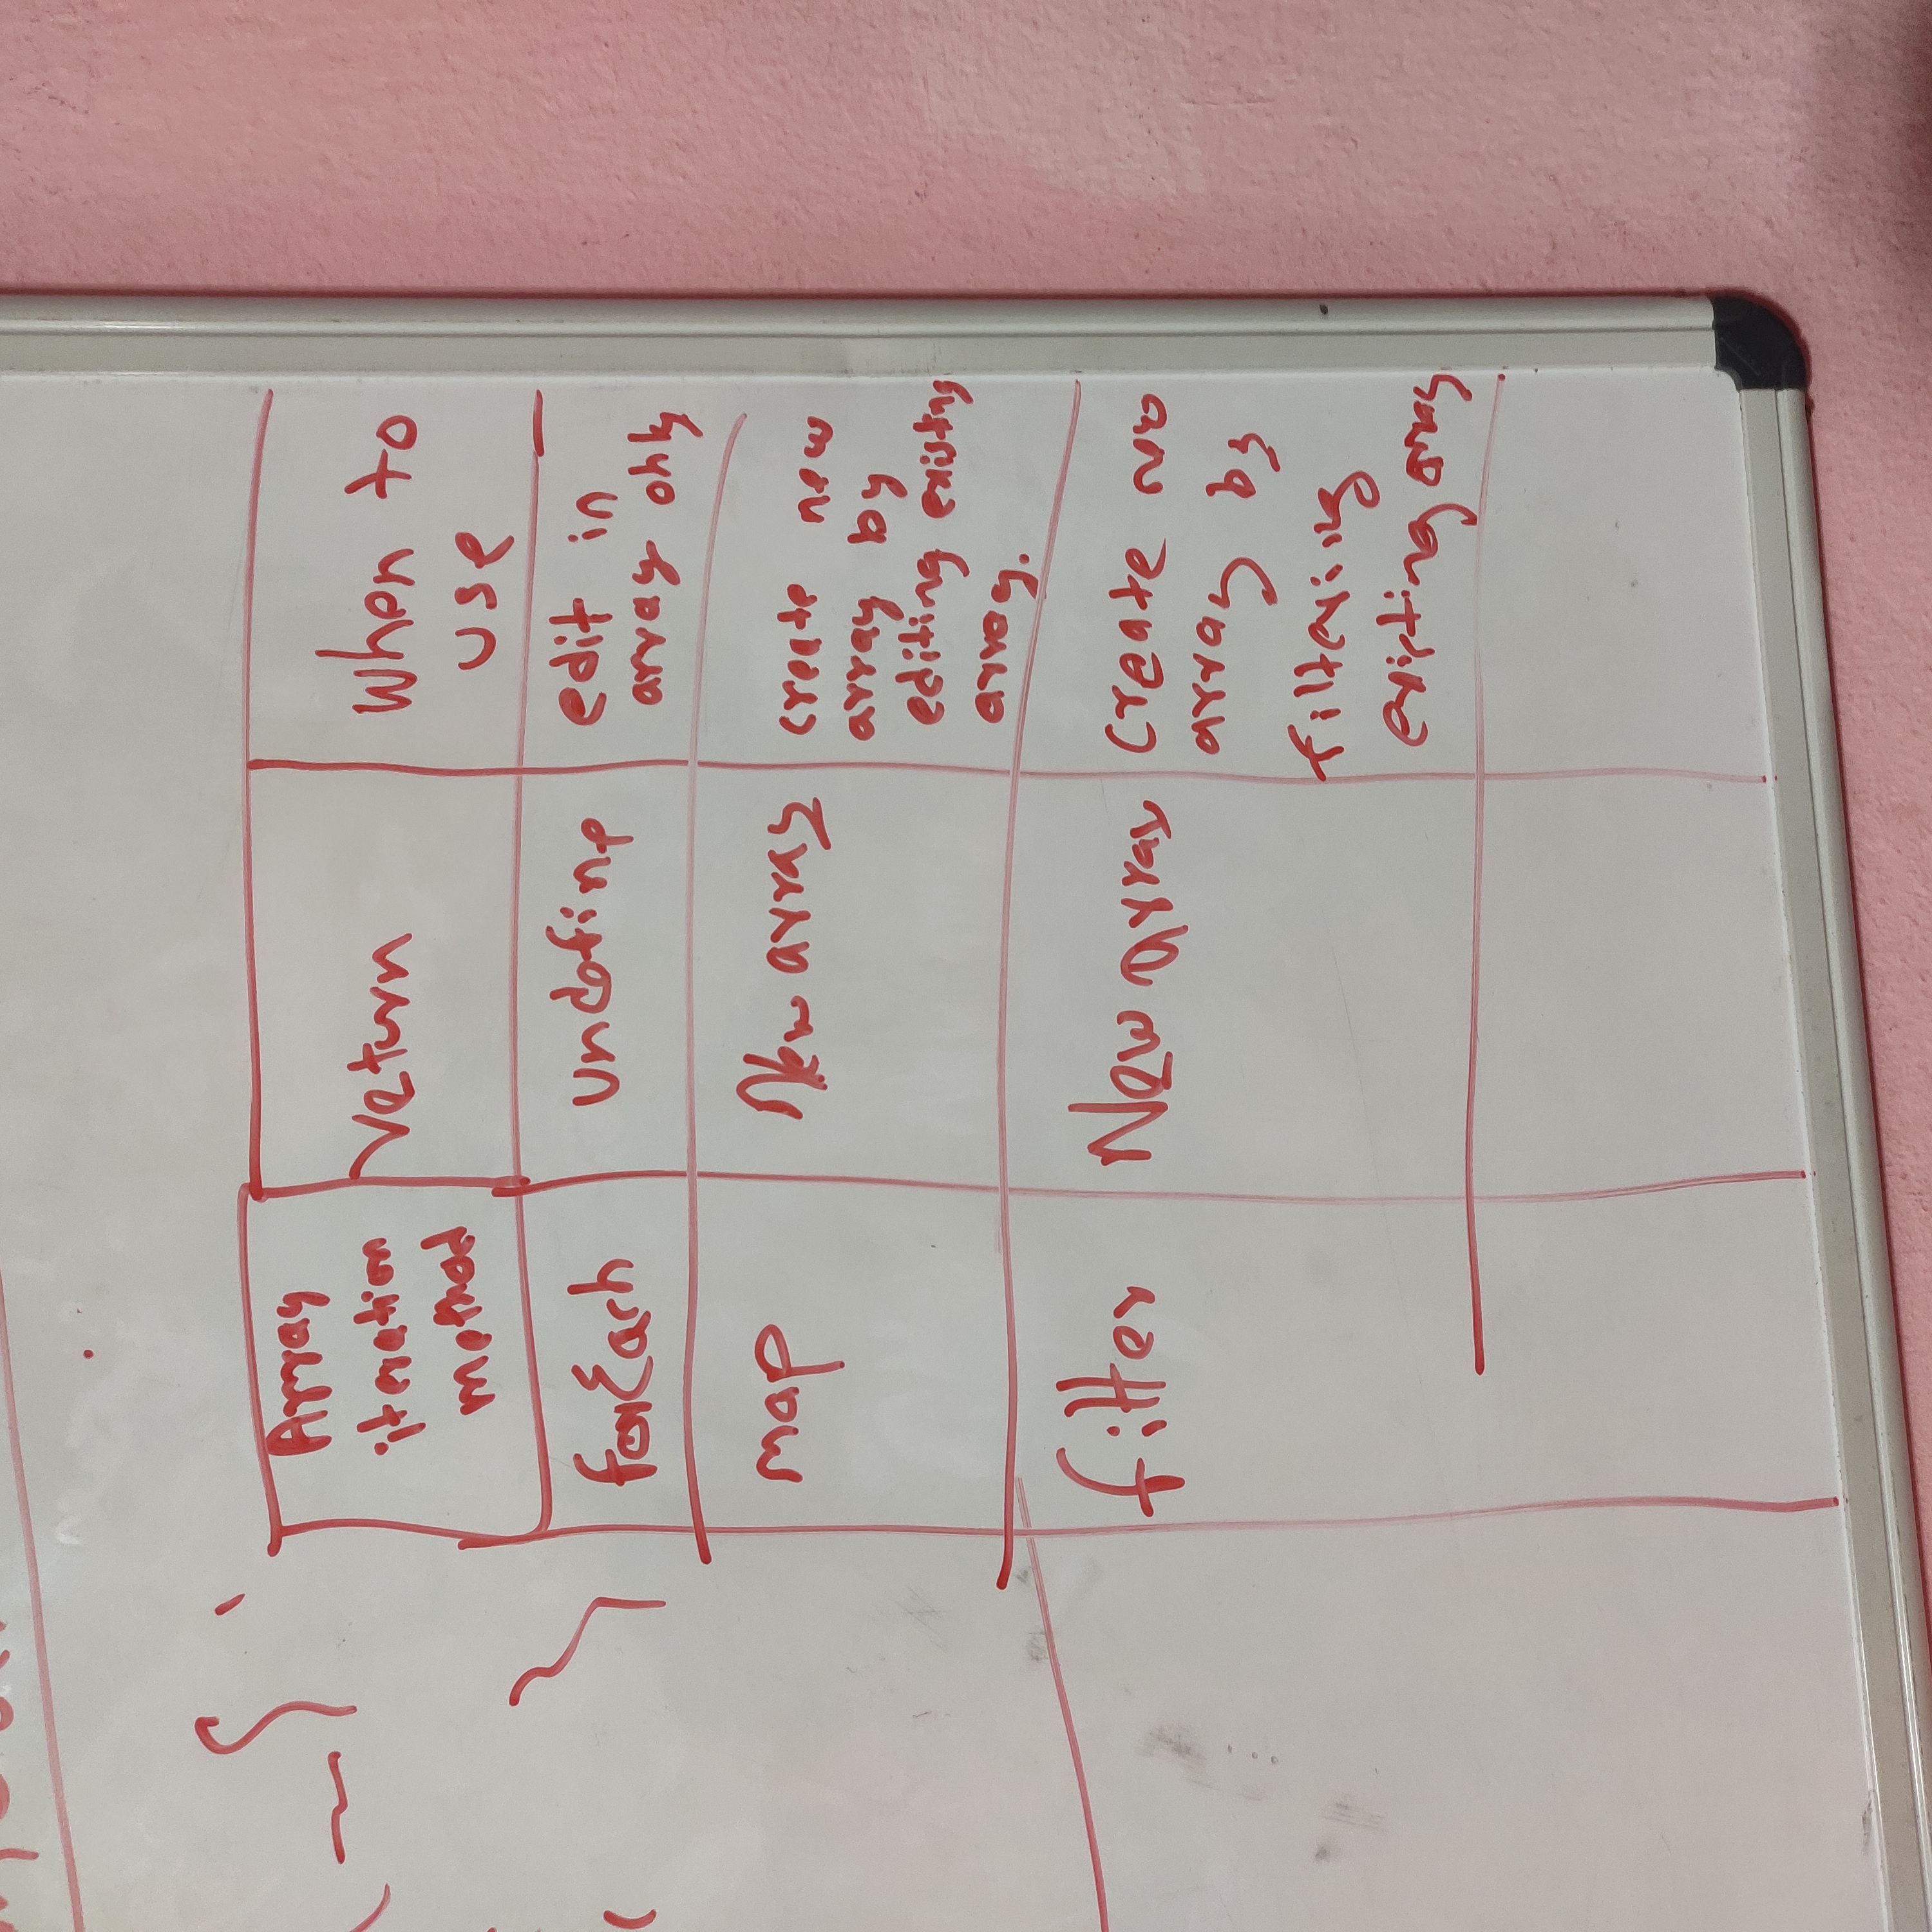 Array
iteration
method
return
when to
use
forEach
undefine
edit in
array only
map
New array
create new
array by
editing existng
array.
filter
New array
create new
array by
filtering
existing array